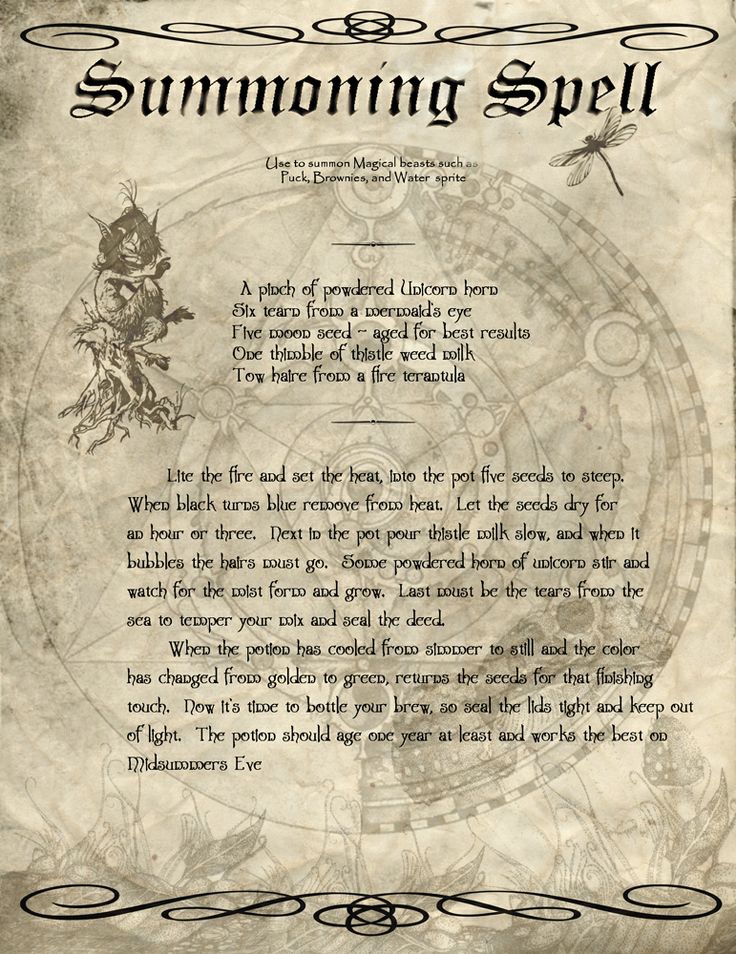 Summoning Spell
Use to summon Magical beasts such as
Puck, Brownies, and Water sprite
A pinch of powdered Unicorn horn
Six tearn from a mermaid's eye
Five moon seed ~ aged for best results
One thimble of thistle weed milk
Tow haire from a fire terantula
Lite the fire and set the heat, into the pot five seeds to steep.
When black turns blue remove from heat. Let the seeds dry for
an hour or three. Next in the pot pour thistle milk slow, and when it
bubbles the hairs must go. Some powdered horn of unicorn stir and
watch for the mist form and grow. Last must be the tears from the
sea to temper your mix and seal the deed.
When the potion has cooled from simmer to still and the color
has changed from golden to green, returns the seeds for that finishing
touch. Now it's time to bottle your brew, so seal the lids tight and keep out
of light. The potion should age one year at least and works the best on
Midsummers Eve